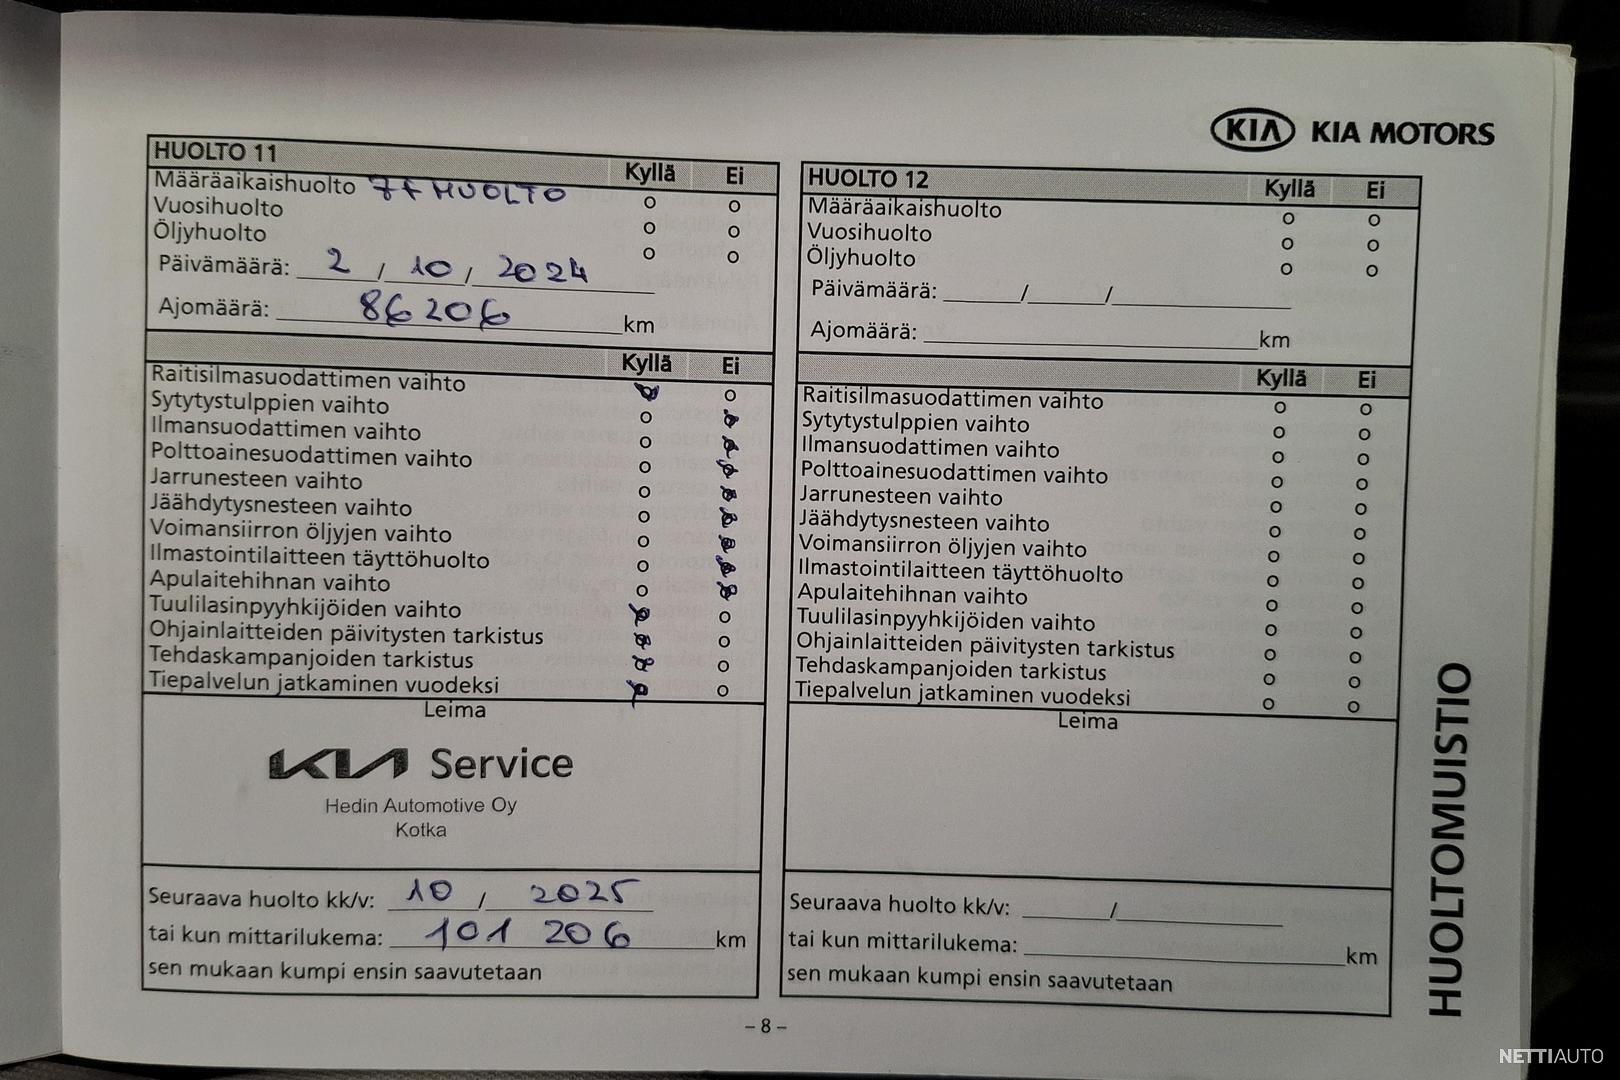 KIA KIA MOTORS
HUOLTO 11 Kyllä Ei
Määräaikaishuolto 7F HUOLTO o o
Vuosihuolto o o
Öljyhuolto o o
Päivämäärä: 2 / 10 / 2024
Ajomäärä: 86 206 km
Kyllä Ei
Raitisilmasuodattimen vaihto
Sytytystulppien vaihto
Ilmansuodattimen vaihto
Polttoainesuodattimen vaihto
Jarrunesteen vaihto
Jäähdytysnesteen vaihto
Voimansiirron öljyjen vaihto
Ilmastointilaitteen täyttöhuolto
Apulaitehihnan vaihto
Tuulilasinpyyhkijöiden vaihto
Ohjainlaitteiden päivitysten tarkistus
Tehdaskampanjoiden tarkistus
Tiepalvelun jatkaminen vuodeksi
Leima
KIA Service
Hedin Automotive Oy
Kotka
Seuraava huolto kk/v: 10 / 2025
tai kun mittarilukema: 101 206 km
sen mukaan kumpi ensin saavutetaan
HUOLTO 12 Kyllä Ei
Määräaikaishuolto o o
Vuosihuolto o o
Öljyhuolto o o
Päivämäärä: ______/______/______
Ajomäärä: ______ km
Kyllä Ei
Raitisilmasuodattimen vaihto o o
Sytytystulppien vaihto o o
Ilmansuodattimen vaihto o o
Polttoainesuodattimen vaihto o o
Jarrunesteen vaihto o o
Jäähdytysnesteen vaihto o o
Voimansiirron öljyjen vaihto o o
Ilmastointilaitteen täyttöhuolto o o
Apulaitehihnan vaihto o o
Tuulilasinpyyhkijöiden vaihto o o
Ohjainlaitteiden päivitysten tarkistus o o
Tehdaskampanjoiden tarkistus o o
Tiepalvelun jatkaminen vuodeksi o o
Leima
Seuraava huolto kk/v: ______/______
tai kun mittarilukema: ______ km
sen mukaan kumpi ensin saavutetaan
HUOLTOMUISTIO
– 8 –
NETTIAUTO